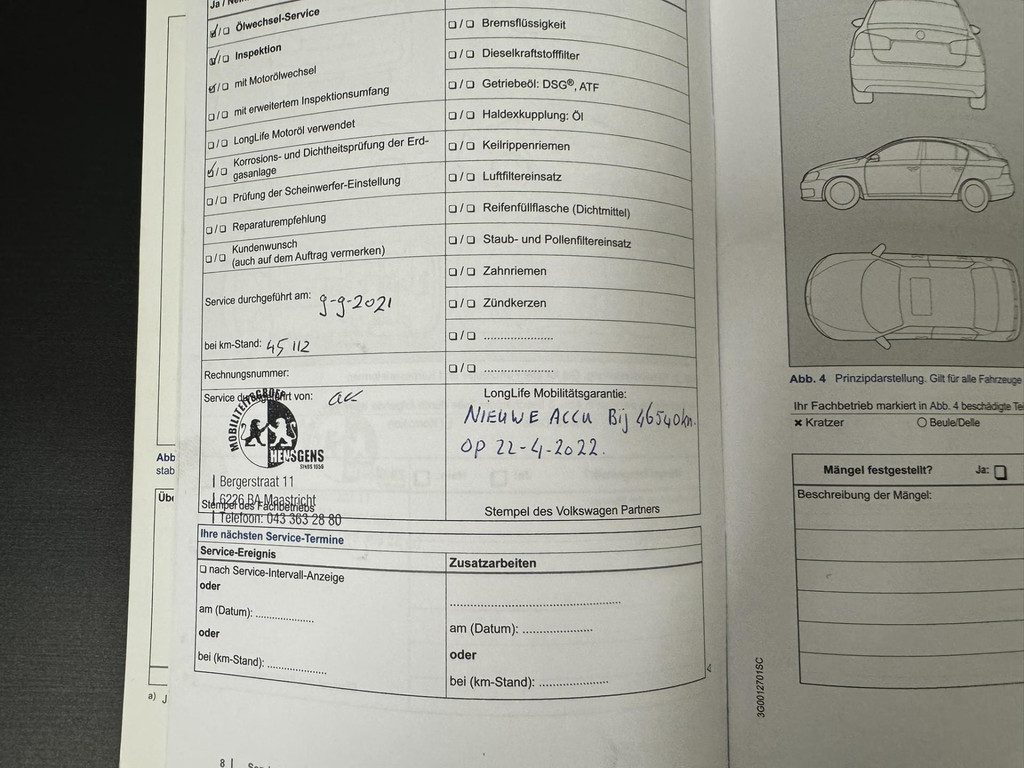 Ölwechsel-Service
Inspektion
mit Motorölwechsel
mit erweitertem Inspektionsumfang
LongLife Motoröl verwendet
Korrosions- und Dichtheitsprüfung der Erd-
gasanlage
Prüfung der Scheinwerfer-Einstellung
Reparaturempfehlung
Kundenwunsch
(auch auf dem Auftrag vermerken)
Service durchgeführt am: 9-9-2021
bei km-Stand: 45 112
Rechnungsnummer:
Service durchgeführt von:
MOBILITEITSGROEP
HENSGENS
SINDS 1936
Bergerstraat 11
6226 BA Maastricht
Stempel des Fachbetriebs
Telefoon: 043 363 28 80
Bremsflüssigkeit
Dieselkraftstofffilter
Getriebeöl: DSG®, ATF
Haldexkupplung: Öl
Keilrippenriemen
Luftfiltereinsatz
Reifenfüllflasche (Dichtmittel)
Staub- und Pollenfiltereinsatz
Zahnriemen
Zündkerzen
LongLife Mobilitätsgarantie:
NIEUWE ACCU Bij 46540km.
OP 22-4-2022.
Stempel des Volkswagen Partners
Ihre nächsten Service-Termine
Service-Ereignis
nach Service-Intervall-Anzeige
oder
am (Datum): ....................
oder
bei (km-Stand): ....................
Zusatzarbeiten
am (Datum): ....................
oder
bei (km-Stand): ....................
8
Abb
stab
a) J
Abb. 4 Prinzipdarstellung. Gilt für alle Fahrzeuge
Ihr Fachbetrieb markiert in Abb. 4 beschädigte
x Kratzer
Beule/Delle
Mängel festgestellt? Ja:
Beschreibung der Mängel:
3G0012701SC